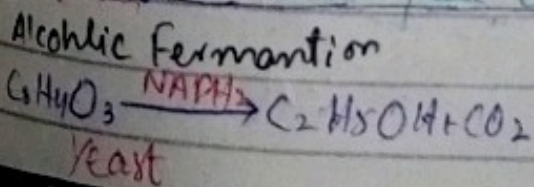 Alcohlic Fermantion
C3H4O3 NAPH2 → C2H5OH + CO2
Yeast